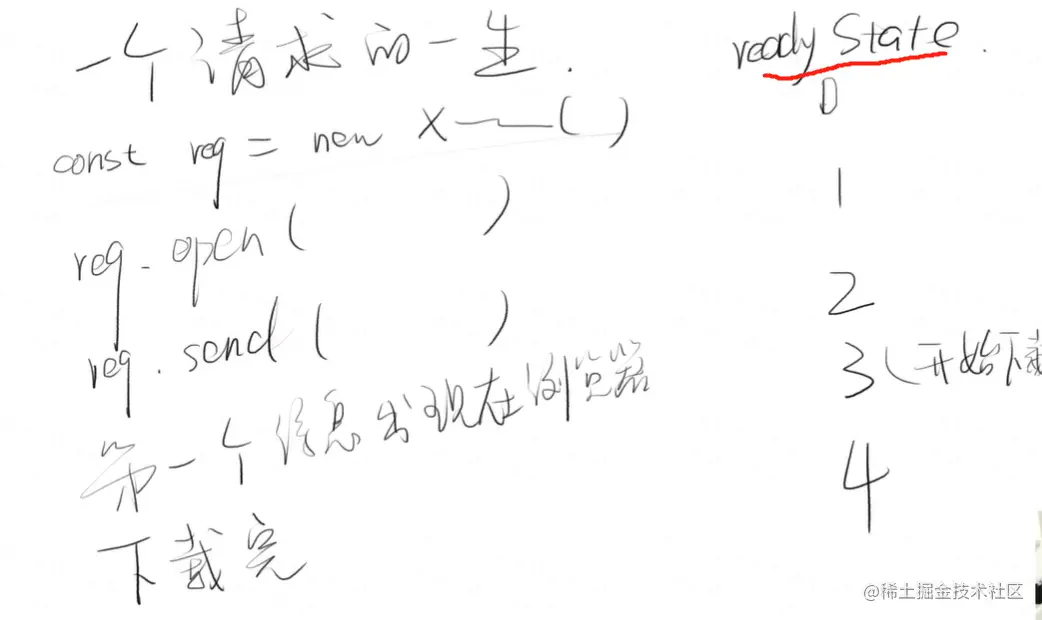 一个请求的一生.
readyState.
const req = new X——()
0
req.open( )
1
req.send( )
2
第一个信息出现在浏览器
3(开始下载
下载完
4
@稀土掘金技术社区